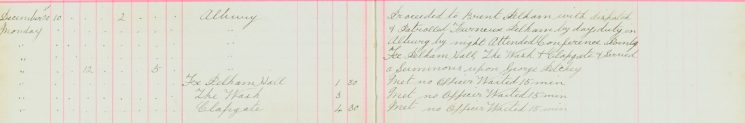 December 20 10 .. 2 .. Albury Proceeded to Brent Pelham with dispatch
Monday " & Patrolled Furneux Pelham by day, duty in
" " Albury by night Attended Conference Points
" " Fox Pelham Hall, The Wash & Clapgate & Served
" 12 .. 5 .. " a Summons upon George
" Fx Pelham Hall 1 30 Met no Officer Waited 15 min
" The Wash 3 Met no Officer Waited 15 min
" Clapgate 4 30 Met no Officer Waited 15 min